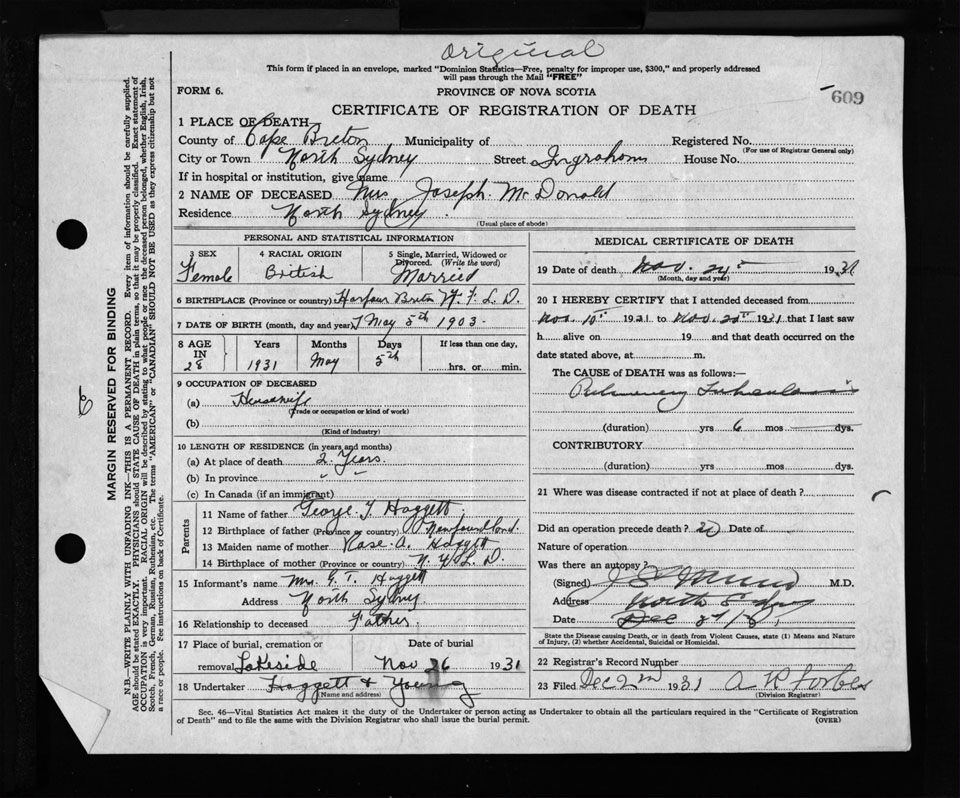 Original
This form if placed in an envelope, marked "Dominion Statistics—Free, penalty for improper use, $300," and properly addressed
will pass through the Mail "FREE"
FORM 6. PROVINCE OF NOVA SCOTIA 609
CERTIFICATE OF REGISTRATION OF DEATH
1 PLACE OF DEATH
County of Cape Breton Municipality of Registered No.
(For use of Registrar General only)
City or Town North Sydney Street Ingraham House No.
If in hospital or institution, give name
2 NAME OF DECEASED Mrs Joseph McDonald
Residence North Sydney
(Usual place of abode)
PERSONAL AND STATISTICAL INFORMATION
3 SEX 4 RACIAL ORIGIN 5 Single, Married, Widowed or
Divorced. (Write the word)
Female British Married
6 BIRTHPLACE (Province or country) Harbour Breton N.F.L.D.
7 DATE OF BIRTH (month, day and year) May 5th 1903.
8 AGE IN Years Months Days If less than one day,
28 1931 May 5th hrs. or min.
9 OCCUPATION OF DECEASED
(a) Housewife
(Trade or occupation or kind of work)
(b)
(Kind of industry)
10 LENGTH OF RESIDENCE (in years and months)
(a) At place of death 2 Years.
(b) In province " "
(c) In Canada (if an immigrant)
Parents
11 Name of father George T Haggett
12 Birthplace of father (Province or country) Newfoundland.
13 Maiden name of mother Rose A. Haggett
14 Birthplace of mother (Province or country) N.F.L.D.
15 Informant's name Mrs. G. T. Haggett
Address North Sydney.
16 Relationship to deceased Father.
17 Place of burial, cremation or Date of burial
removal Lakeside Nov 26 1931
18 Undertaker Haggett & Young
(Name and address)
MEDICAL CERTIFICATE OF DEATH
19 Date of death Nov. 24th 1931
(Month, day and year)
20 I HEREBY CERTIFY that I attended deceased from
Nov. 10th 1931 to Nov. 1931 that I last saw
h alive on 19 and that death occurred on the
date stated above, at m.
The CAUSE OF DEATH was as follows:—
Pulmonary Tuberculosis
(duration) yrs 6 mos dys.
CONTRIBUTORY
(duration) yrs mos dys.
21 Where was disease contracted if not at place of death?
Did an operation precede death? no Date of
Nature of operation
Was there an autopsy?
(Signed) M.D.
Address North Sydney
Date Dec
State the Disease causing Death, or in death from Violent Causes, state (1) Means and Nature
of Injury, (2) whether Accidental, Suicidal or Homicidal.
22 Registrar's Record Number
23 Filed Dec 2nd 1931 A R Forbes
(Division Registrar)
Sec. 46—Vital Statistics Act makes it the duty of the Undertaker or person acting as Undertaker to obtain all the particulars required in the "Certificate of Registration
of Death" and to file the same with the Division Registrar who shall issue the burial permit. (OVER)
6
MARGIN RESERVED FOR BINDING
N.B.—WRITE PLAINLY WITH UNFADING INK—THIS IS A PERMANENT RECORD. Every item of information should be carefully supplied.
AGE should be stated EXACTLY. PHYSICIANS should STATE CAUSE OF DEATH in plain terms, so that it may be properly classified. Exact statement of
OCCUPATION is very important. RACIAL ORIGIN will be described by stating to what people or race the deceased person belonged, whether English, Irish,
Scotch, French, German, Russian, Ruthenian, etc. The terms "AMERICAN" or "CANADIAN" SHOULD NOT BE USED as they express citizenship but not
a race or people. See instructions on back of Certificate.